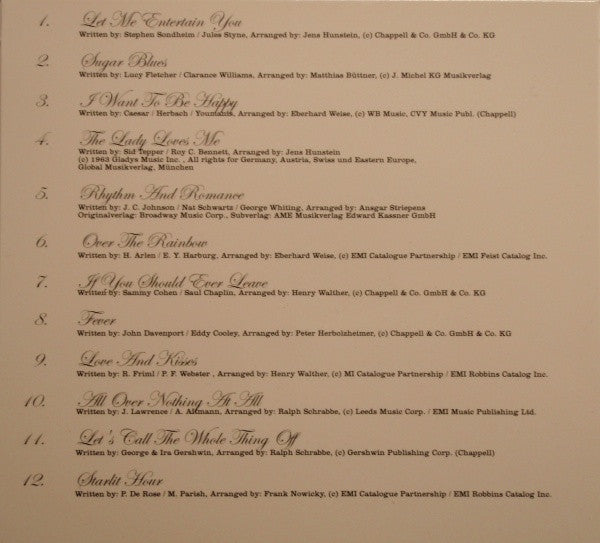 1. Let Me Entertain You
Written by: Stephen Sondheim / Jules Styne, Arranged by: Jens Hunstein, (c) Chappell & Co. GmbH & Co. KG
2. Sugar Blues
Written by: Lucy Fletcher / Clarance Williams, Arranged by: Matthias Büttner, (c) J. Michel KG Musikverlag
3. I Want To Be Happy
Written by: Caesar / Herbach / Youmans, Arranged by: Eberhard Weise, (c) WB Music, CVY Music Publ. (Chappell)
4. The Lady Loves Me
Written by: Sid Tepper / Roy C. Bennett, Arranged by: Jens Hunstein
(c) 1963 Gladys Music Inc. , All rights for Germany, Austria, Swiss und Eastern Europe,
Global Musikverlag, München
5. Rhythm And Romance
Written by: J. C. Johnson / Nat Schwartz / George Whiting, Arranged by: Ansgar Striepens
Originalverlag: Broadway Music Corp., Subverlag: AME Musikverlag Edward Kassner GmbH
6. Over The Rainbow
Written by: H. Arlen / E. Y. Harburg, Arranged by: Eberhard Weise, (c) EMI Catalogue Partnership / EMI Feist Catalog Inc.
7. If You Should Ever Leave
Written by: Sammy Cohen / Saul Chaplin, Arranged by: Henry Walther, (c) Chappell & Co. GmbH & Co. KG
8. Fever
Written by: John Davenport / Eddy Cooley, Arranged by: Peter Herbolzheimer, (c) Chappell & Co. GmbH & Co. KG
9. Love And Kisses
Written by: R. Friml / P. F. Webster , Arranged by: Henry Walther, (c) MI Catalogue Partnership / EMI Robbins Catalog Inc.
10. All Over Nothing At All
Written by: J. Lawrence / A. Altmann, Arranged by: Ralph Schrabbe, (c) Leeds Music Corp. / EMI Music Publishing Ltd.
11. Let's Call The Whole Thing Off
Written by: George & Ira Gershwin, Arranged by: Ralph Schrabbe, (c) Gershwin Publishing Corp. (Chappell)
12. Starlit Hour
Written by: P. De Rose / M. Parish, Arranged by: Frank Nowicky, (c) EMI Catalogue Partnership / EMI Robbins Catalog Inc.